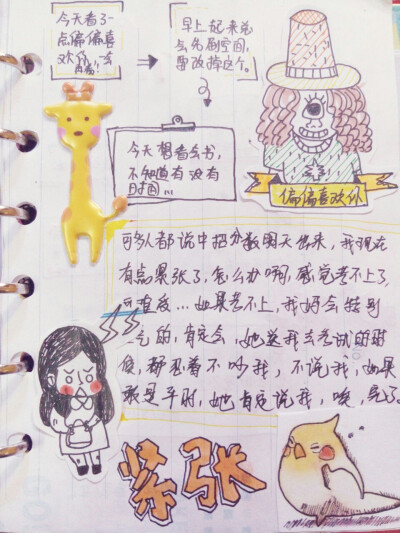 今天看了一
点偏偏喜
欢你,去
早上起来总
会先刷空间,
要改掉这个。
今天想看会书,
不知道有没有
时间...
偏偏喜欢你
可多人都说中招分数明天出来,我现在
有点紧张了,怎么办啊,感觉考不上了,
可难受...如果考不上,我妈会特别
生气的,肯定会,她送我去考试的时
候,都忍着不吵我,不说我,如果
是平时,她肯定说我,唉,完了。
紧张